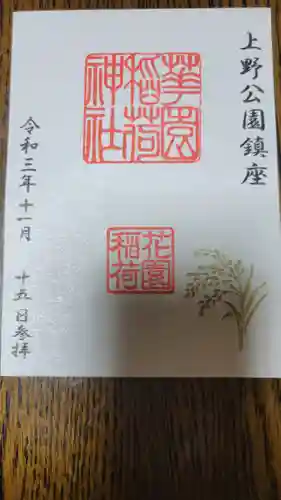 上野公園鎮座
華園稲荷神社
花園稲荷
令和三年十一月十五日参拝